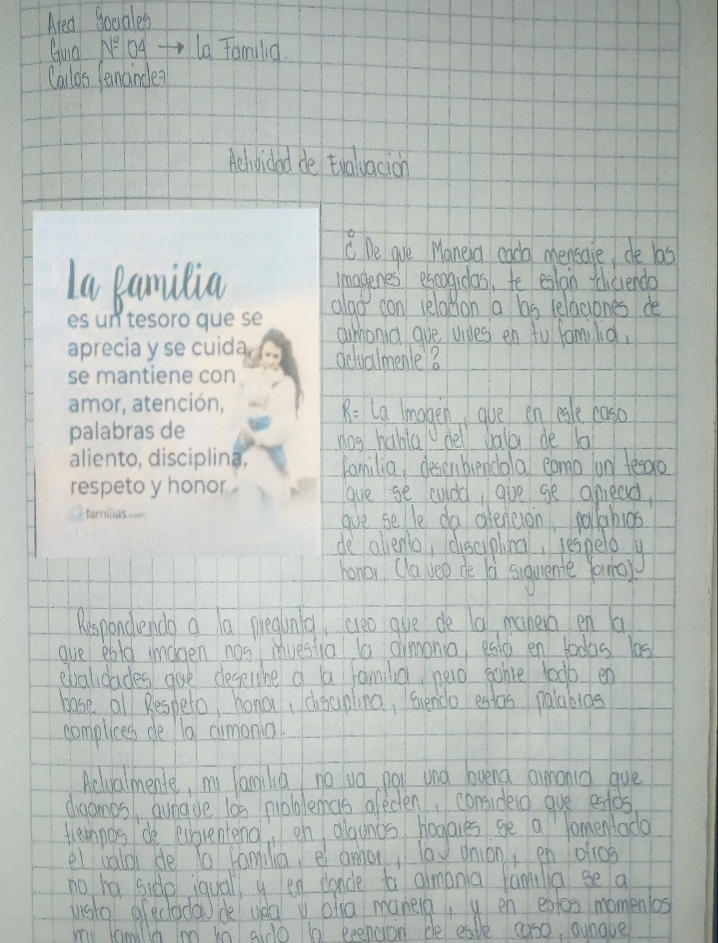 Area Sociales
Guia Nº 04 → la Familia
Carlos fernández
Actividad de Evaluación
La familia
es un tesoro que se
aprecia y se cuida,
se mantiene con
amor, atención,
palabras de
aliento, disciplina,
respeto y honor.
familias.com
¿ De que Manera cada mensaje, de las
imagenes escogidas, te estan diciendo
algo con relación a las relaciones de
armonia que vives en tu familia,
actualmente?
R= La Imagen, que en este caso
nos habla del valor de la
familia, describiendola como un tesoro
que se cuida, que se aprecia,
que se le da atención, palabras
de aliento, disciplina, respeto y
honor. (la veo de la siguiente forma)
Respondiendo a la pregunta, creo que de la manera en la
que esta imagen nos muestra la armonia, esta en todas las
cualidades que describe a la familia, pero sobre todo en
base al Respeto, honor, disciplina, siendo estas palabras
complices de la armonia.
Actualmente, mi familia no va por una buena armonia que
digamos, aunque los problemas afecten, considero que estos
tiempos de en algunos hogares se a fomentado
el valor de la familia, el amor, la union, en otros
no ha sido igual, y en donde la armonia familia se a
visto afectada de una u otra manera, y en estos momentos
mi familia no ha sido la de este caso, aunque